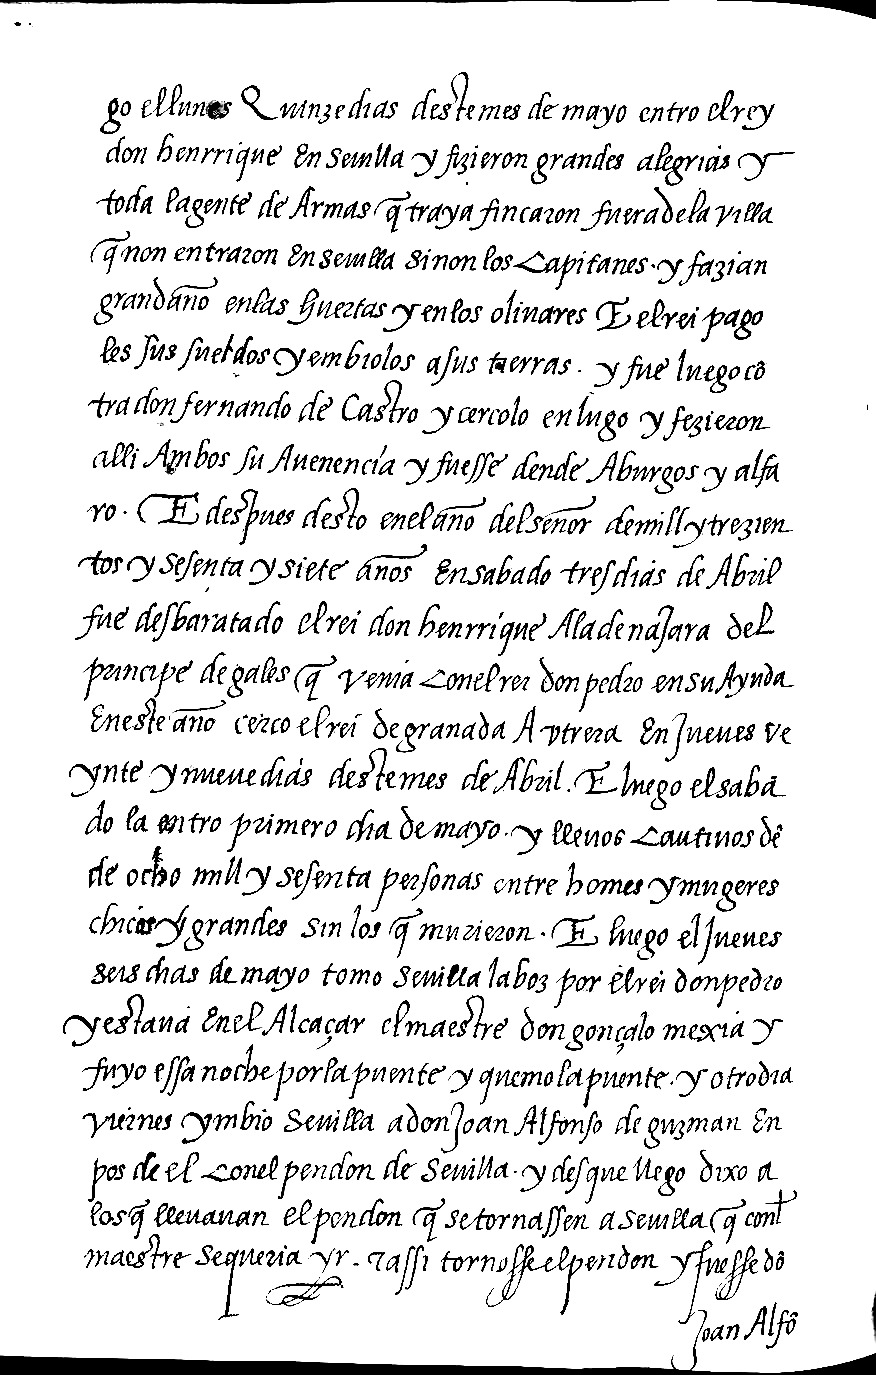 go el lunes Quinze dias deste mes de mayo entro el rey
don henrrique En seuilla y fizieron grandes alegrias y
toda la gente de Armas q̃ traya fincaron fuera de la villa
q̃ non entraron En seuilla sinon los Capitanes. y fazian
grand año en las huertas y en los oliuares E el rei pago
les sus sueldos y embiolos a sus tierras. y fue luego cõ
tra don fernando de Castro y cercolo en lugo y fezieron
alli Ambos su Auenencia y fuesse dende A burgos y alfa
ro. E despues desto en el año del señor de mill y trezien
tos y sesenta y siete años En sabado tres dias de Abril
fue desbaratado el rei don henrrique A la de najara del
principe de gales q̃ venia Con el rei don pedro en su Ayuda
En este año cerco el rei de granada A vtrera En Jueues ve
ynte y nueue dias deste mes de Abril. E luego el saba
do la entro primero dia de mayo. y lleuos Cautiuos dẽ
de ocho mill y sesenta personas entre homes y mugeres
chicos y grandes sin los q̃ murieron. E luego el Jueues
seis dias de mayo tomo seuilla la boz por el rei don pedro
y estaua En el Alcaçar el maestre don gonçalo mexia y
fuyo essa noche por la puente y quemo la puente. y otro dia
viernes ymbio seuilla a don Joan Alfonso de guzman En
pos de el Con el pendon de seuilla. y desque llego dixo a
los q̃ lleuauan el pendon q̃ se tornassen a seuilla q̃ conl
maestre se queria yr. z assi tornosse el pendon y fuesse dõ
Joan Alfõ